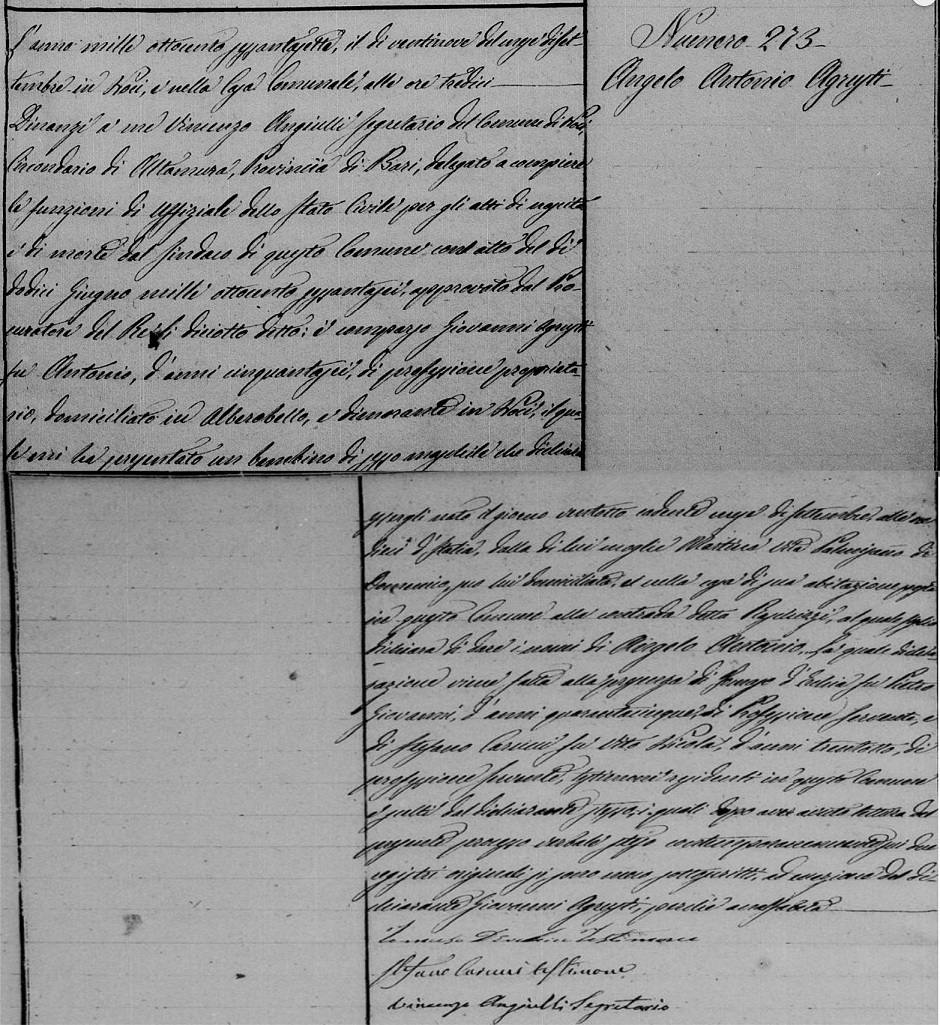 L'anno mille ottocento sessantasette, il di ventinove del mese di Set-
tembre in Noci, e nella Casa Comunale, alle ore tredici
Dinanzi a me Vincenzo Angiulli Segretario del Comune di Noci,
Circondario di Altamura, Provincia di Bari, delegato a compiere
le funzioni di Uffiziale dello Stato Civile per gli atti di nascita
e di morte dal Sindaco di questo Comune con atto del di
dodici Giugno mille ottocento sessantasei, approvato dal Pro-
curatore del Re li diciotto detto; è comparso Giovanni Agrusti
fu Antonio, d'anni cinquantasei, di professione proprieta-
rio, domiciliato in Alberobello, e dimorante in Noci, il qua-
le mi ha presentato un bambino di sesso maschile che dichiara
Numero 273
Angelo Antonio Agrusti
essergli nato il giorno ventotto cadente mese di Settembre alle
d'Italia, dalla di lui moglie Martina Vita Palmisano di
Domenico, con lui domiciliata, e nella casa di sua abitazione posta
in questo Comune alla contrada detta al quale
dichiara di dare i nomi di Angelo Antonio. La quale dichia-
razione viene fatta alla presenza di fu Pietro
Giovanni, d'anni quarantacinque, di Professione servente, e
di Stefano Carucci fu Vito Nicola, d'anni trentotto, di
professione servente, testimoni residenti in questo Comune
e scelti dal dichiarante stesso, i quali dopo aver avuto lettura del
presente processo verbale steso contemporaneamente sui due
registri originali si sono meco sottoscritti, ad eccezione del di-
chiarante Giovanni Agrusti, perchè analfabeta
testimone
Stefano Carucci testimone
Vincenzo Angiulli Segretario